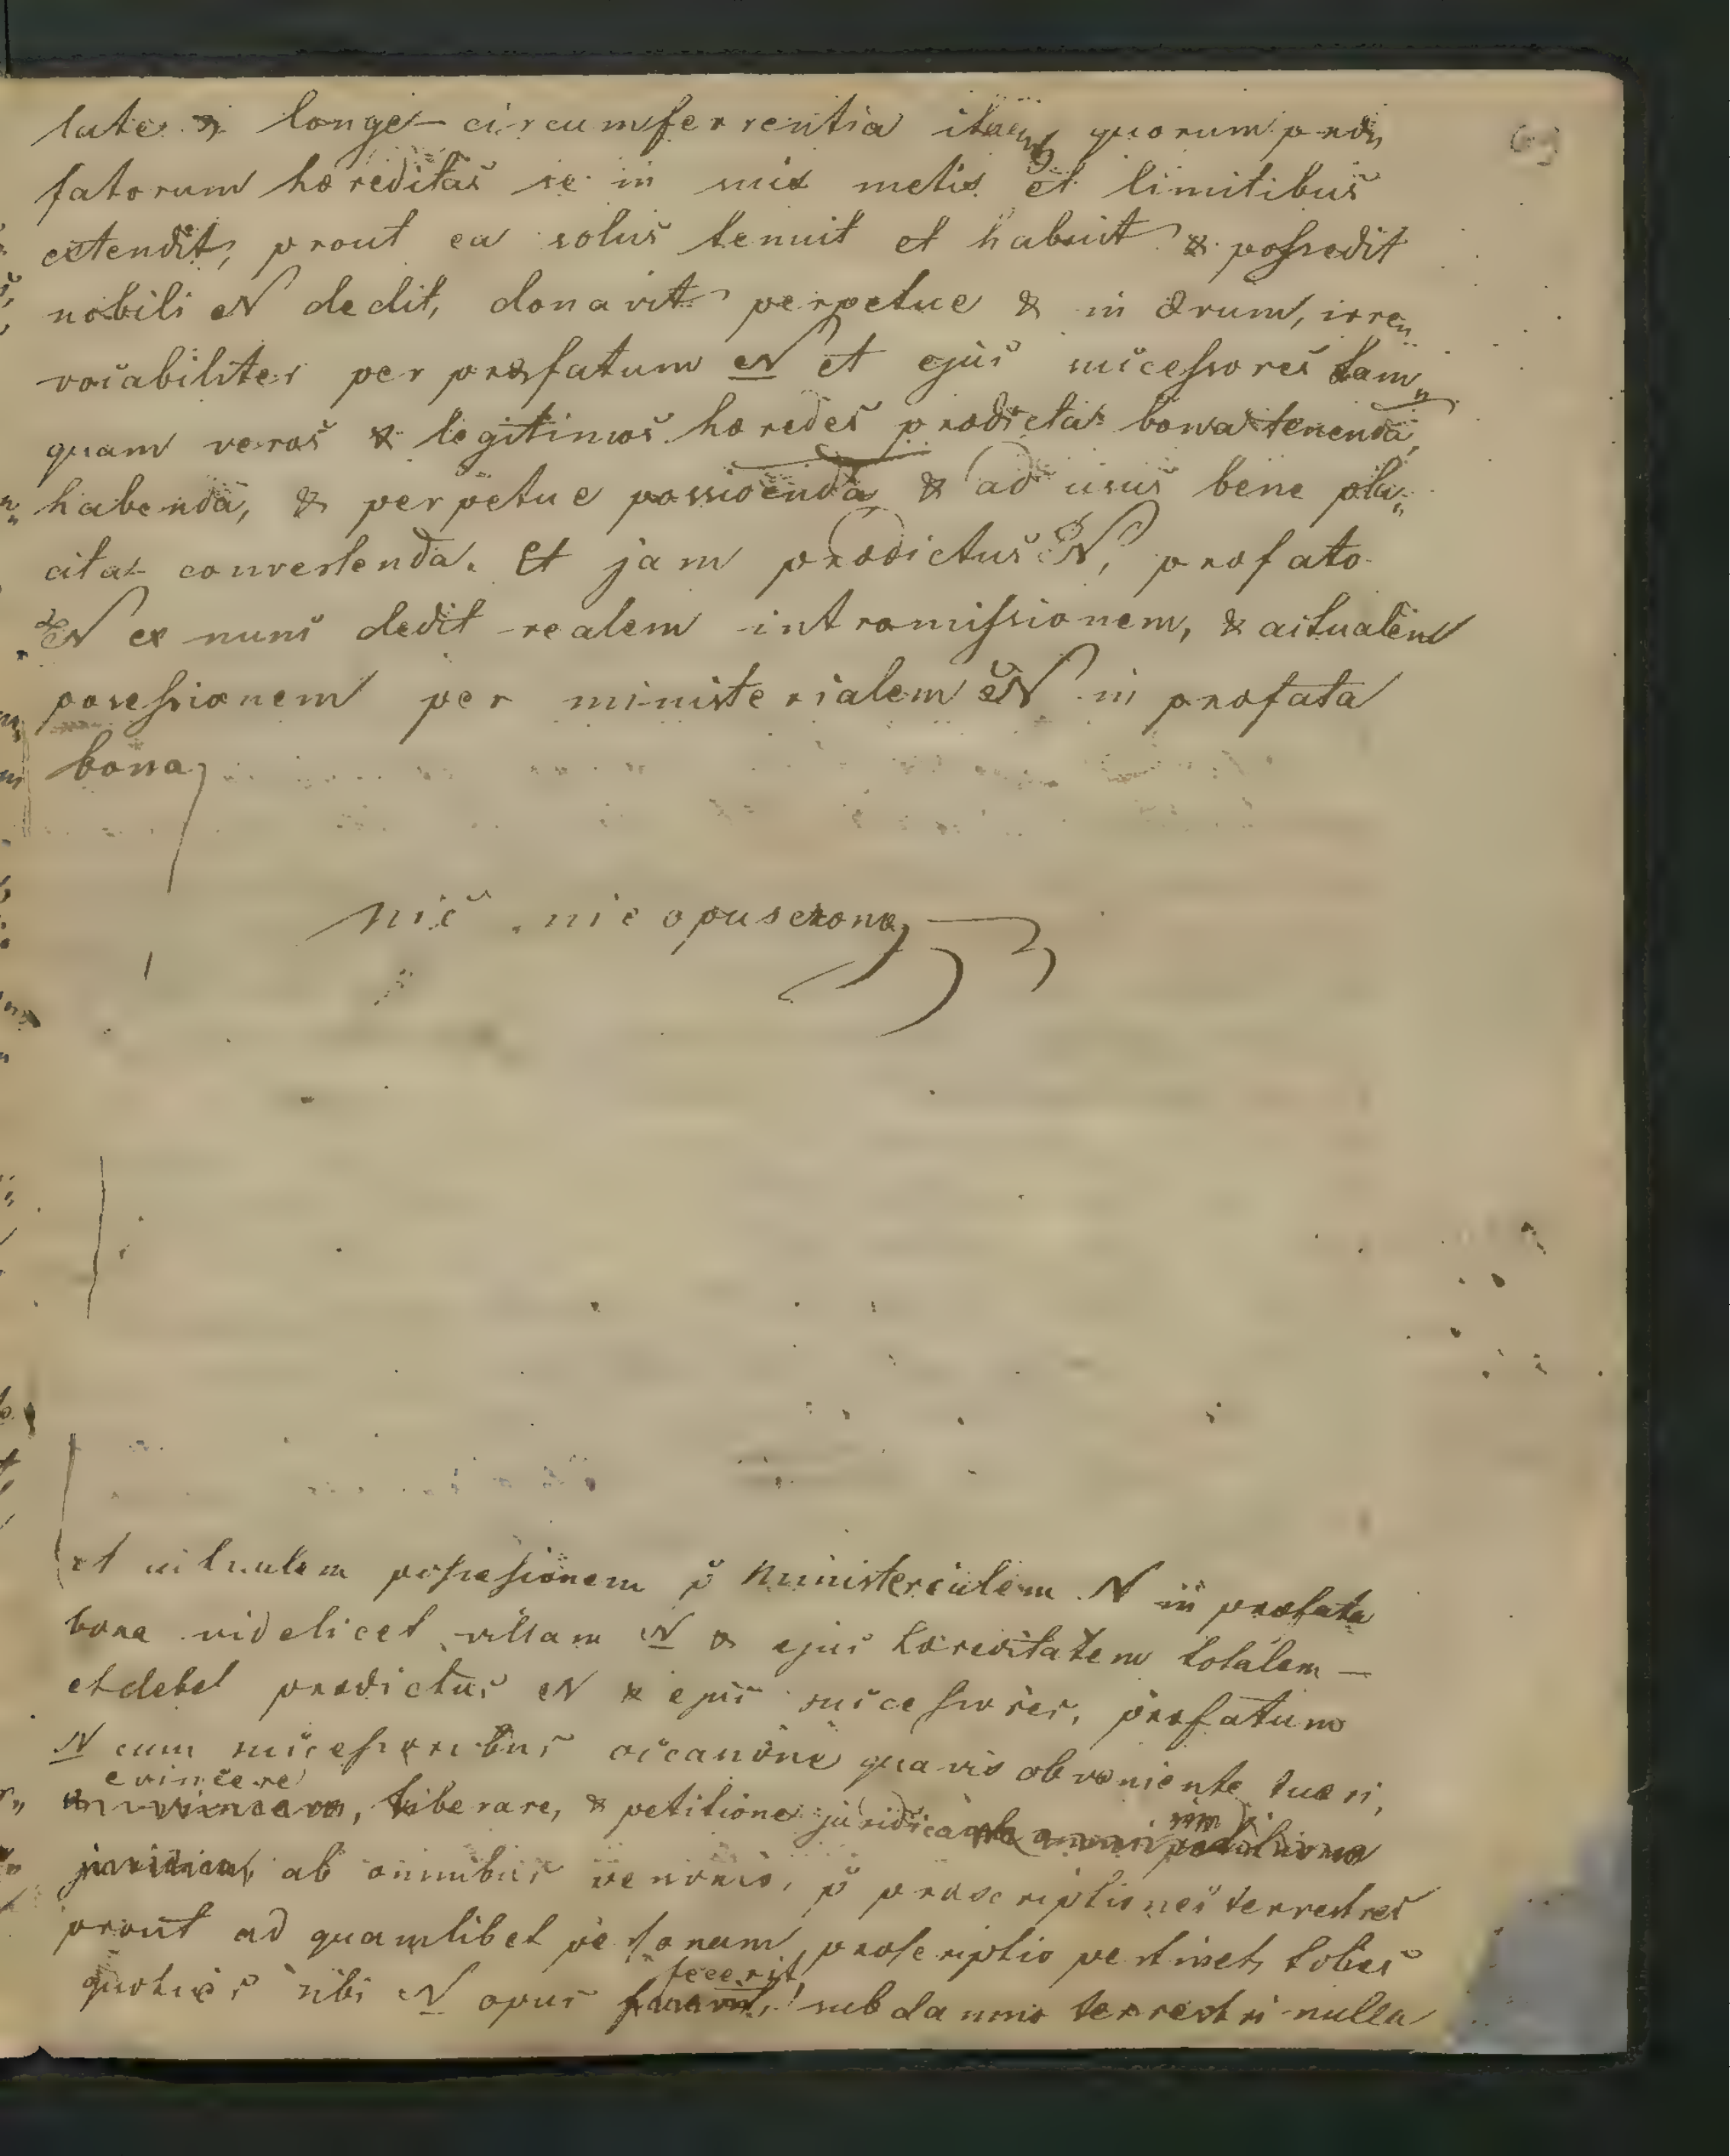 late & longe circumferrentia itaeq quorum præ„
fatorum hæreditas se in suis metis et limitibus
extendit, prout ea solus tenuit et habuit & possedit
nobili N dedit, donavit perpetue & in ævum, irre„
vocabiliter per præfatum N et ejus successores tam„
quam veros & legitimos hæredes prædicta bona tenenda,
habenda, & perpetue possidenda & ad usus bene pla„
cita convertenda. Et jam prædictus N, præfato
N ex nunc dedit realem intromissionem, & actualem
posessionem per ministerialem N in præfata
bona
nic nie opuszczono
et actualem possessionem p ministerialem N in præfata
bona videlicet villam N & ejus hæreditatem totalem —
et debet prædictus N & ejus successores, præfatum
N cum successoribus occasione quavis obveniente tueri,
evincere
liberare, & petitione juridica
juridica ab omnibus personis, p præscriptiones terrestres
prout ad quamlibet personam, præscriptio pertinet, toties
fecerit
quoties sibi N opus sub damno terrestri nulla